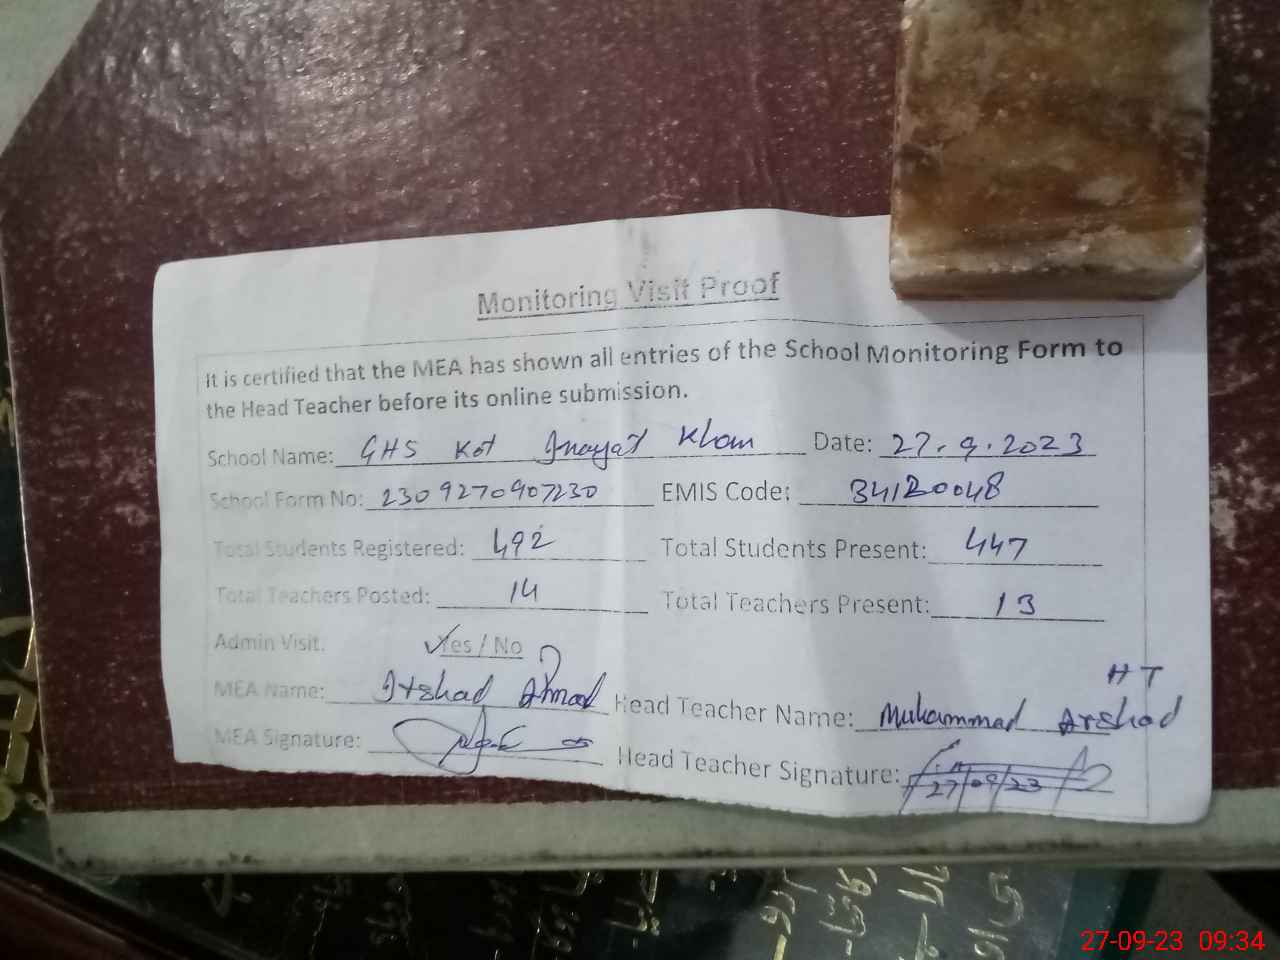 Monitoring Visit Proof
It is certified that the MEA has shown all entries of the School Monitoring Form to
the Head Teacher before its online submission.
School Name: GHS Kot Inayat Khan Date: 27.9.2023
School Form No: 2309270907230 EMIS Code: 34120048
Total Students Registered: 492 Total Students Present: 447
Total Teachers Posted: 14 Total Teachers Present: 13
Admin Visit: Yes / No
HT
MEA Name: Irshad Ahmad Head Teacher Name: Muhammad Arshad
MEA Signature: Head Teacher Signature:
27/09/23
27-09-23 09:34